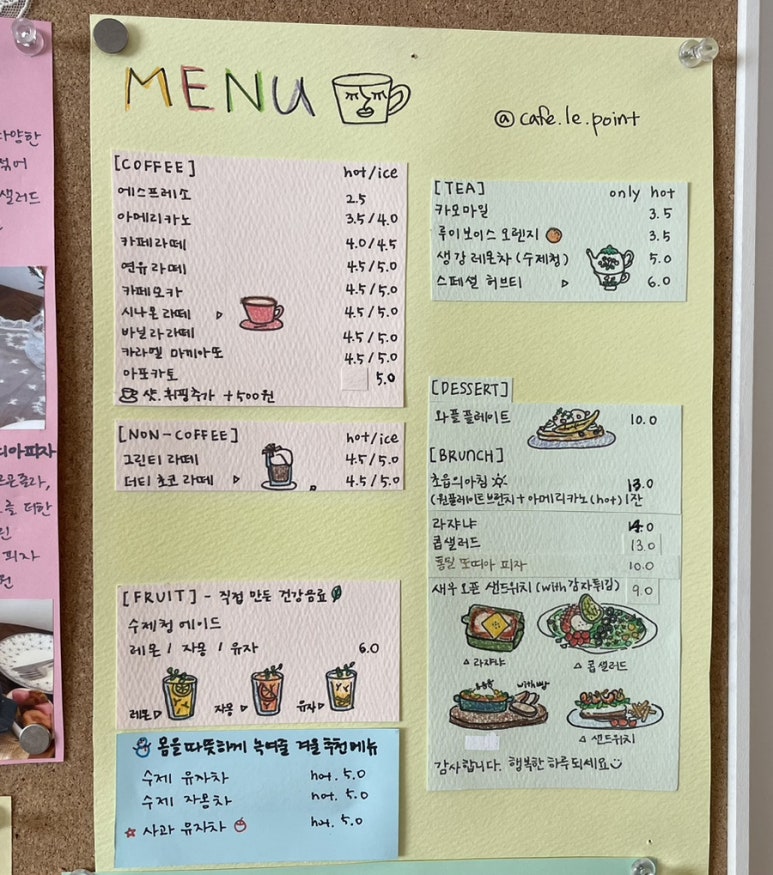 MENU
@cafe.le.point
[COFFEE] hot/ice
에스프레소 2.5
아메리카노 3.5/4.0
카페라떼 4.0/4.5
연유라떼 4.5/5.0
카페모카 4.5/5.0
시나몬라떼 ▷ 4.5/5.0
바닐라라떼 4.5/5.0
카라멜 마끼아또 4.5/5.0
아포카토 5.0
샷.휘핑추가 +500원
[NON-COFFEE] hot/ice
그린티 라떼 4.5/5.0
더티 초코 라떼 ▷ 4.5/5.0
[FRUIT] - 직접 만든 건강음료
수제청 에이드
레몬 / 자몽 / 유자 6.0
레몬▷ 자몽▷ 유자▷
몸을 따뜻하게 녹여줄 겨울 추천메뉴
수제 유자차 hot. 5.0
수제 자몽차 hot. 5.0
☆ 사과 유자차 hot. 5.0
[TEA] only hot
카모마일 3.5
루이보이스 오렌지 3.5
생강 레몬차 (수제청) 5.0
스페셜 허브티 ▷ 6.0
[DESSERT]
와플플레이트 10.0
[BRUNCH]
초읍의아침 13.0
(원플레이트브런치+아메리카노(hot)1잔
라쟈냐 14.0
콥샐러드 13.0
통밀 또띠아 피자 10.0
새우 오픈 샌드위치 (with감자튀김) 9.0
△ 라쟈냐 △ 콥샐러드
with빵
△ 샌드위치
감사합니다. 행복한 하루되세요
다양한
샐러드
더한
피자